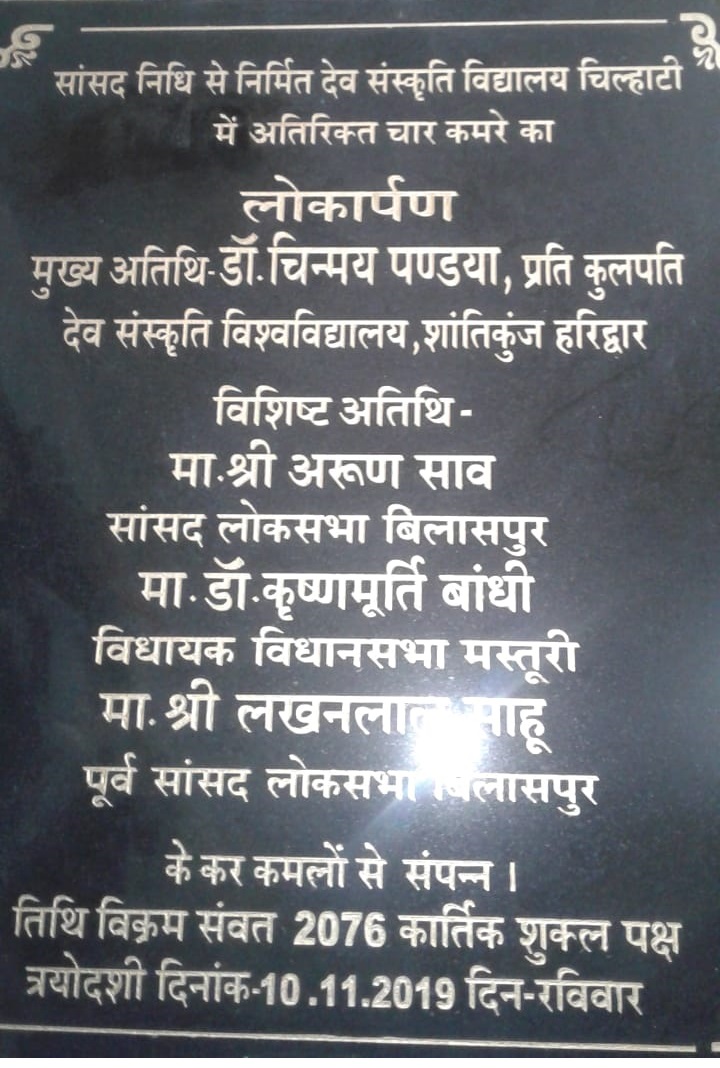 सांसद निधि से निर्मित देव संस्कृति विद्यालय चिल्हाटी
में अतिरिक्त चार कमरे का
लोकार्पण
मुख्य अतिथि-डॉ.चिन्मय पण्डया, प्रति कुलपति
देव संस्कृति विश्वविद्यालय,शांतिकुंज हरिद्वार
विशिष्ट अतिथि -
मा.श्री अरूण साव
सांसद लोकसभा बिलासपुर
मा. डॉ.कृष्णमूर्ति बांधी
विधायक विधानसभा मस्तूरी
मा. श्री लखनलाल साहू
पूर्व सांसद लोकसभा बिलासपुर
के कर कमलों से संपन्न ।
तिथि विक्रम संवत 2076 कार्तिक शुक्ल पक्ष
त्रयोदशी दिनांक-10.11.2019 दिन-रविवार